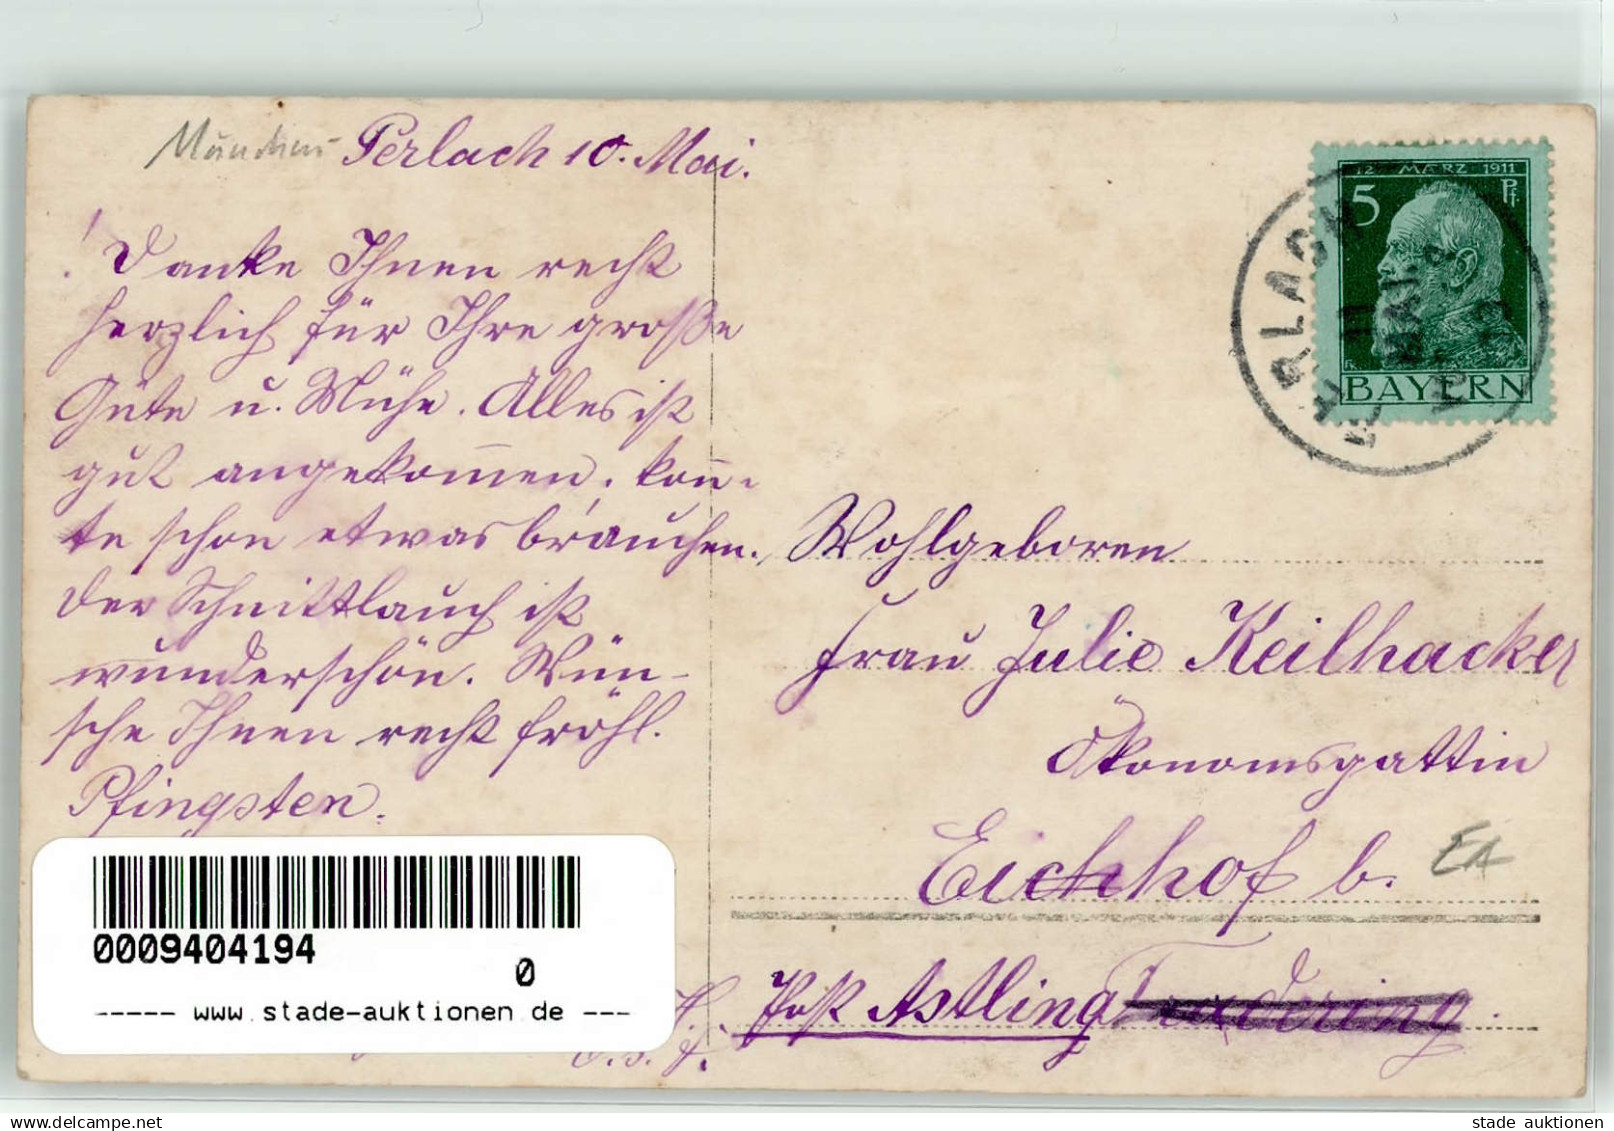 München Perlach 10. Mai.
! Danke Ihnen recht
herzlich für Ihre große
Güte u. Mühe. Alles ist
gut angekom̄en, kon̄-
te schon etwas brauchen.
der Schnittlauch ist
wunderschön. Wün-
sche Ihnen recht fröhl.
Pfingsten.
12 MÄRZ 1911
5 Pf.
BAYERN
PERLACH
11 MAI
Wohlgeboren
Frau Julie Keilhacker
Ökonomsgattin
Eichhof b.
EA
Post Astling
0009404194
0
----- www.stade-auktionen.de ---
stade auktionen